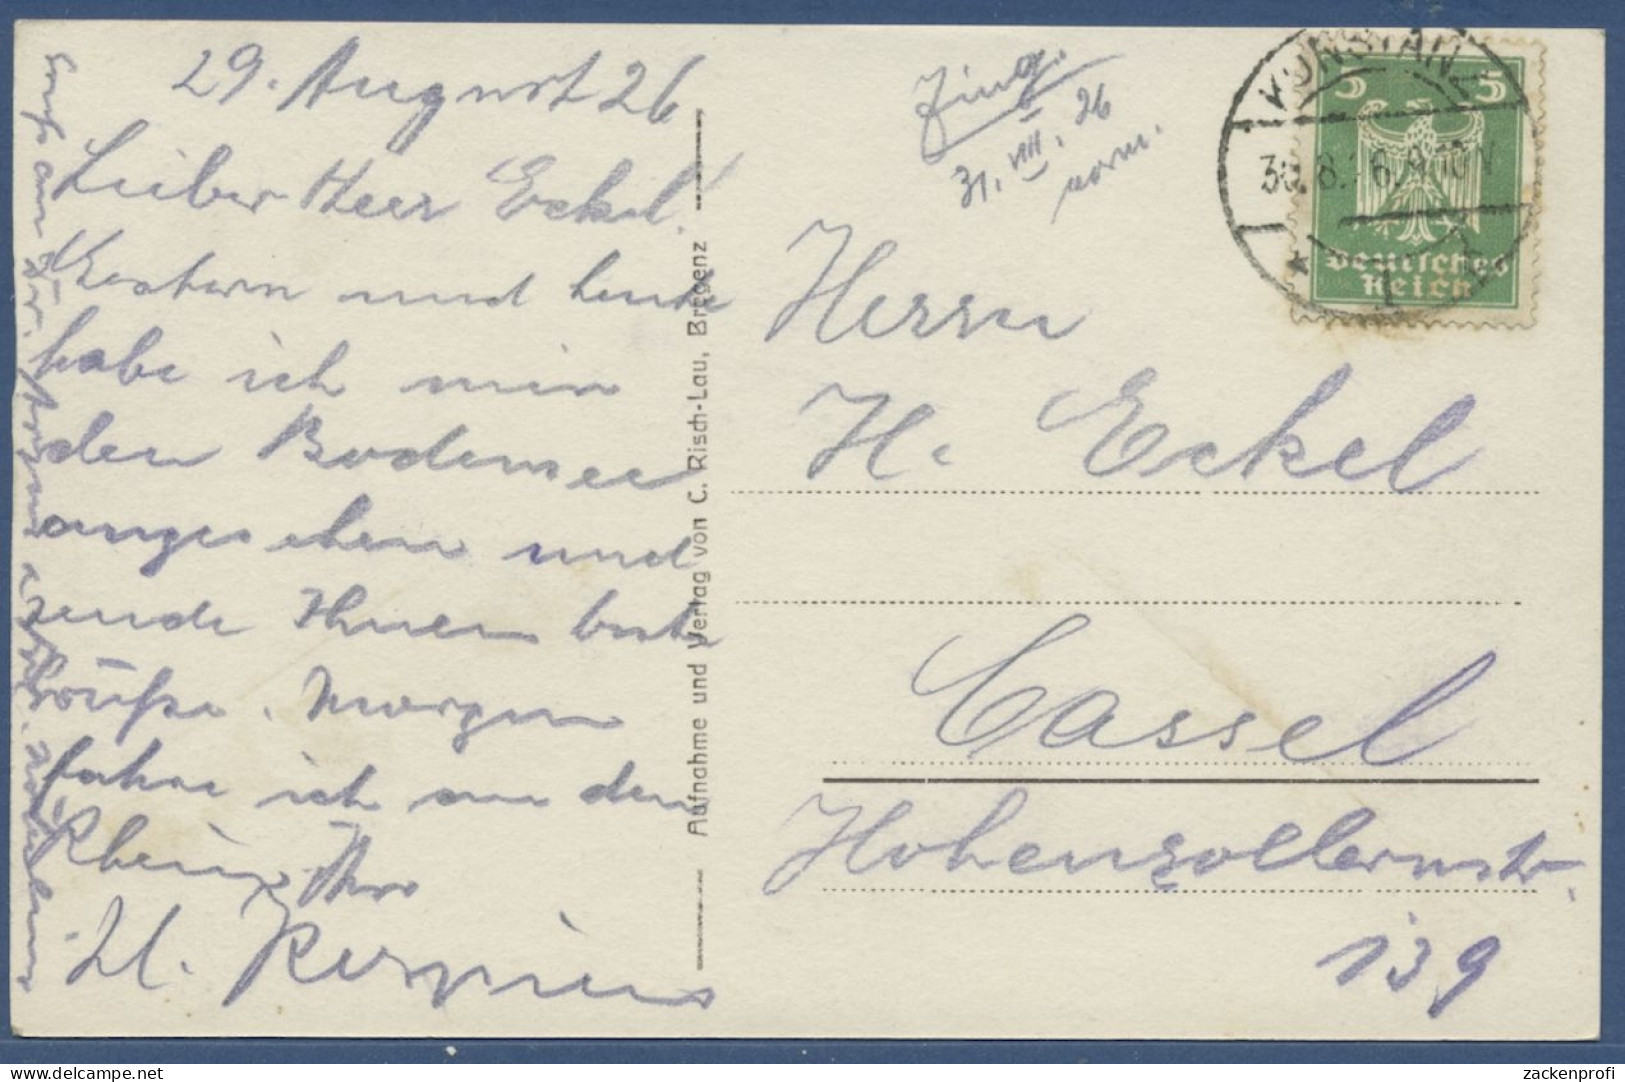 29. August 26
Lieber Herr Eckel!
Gestern und heute
habe ich mir
den Bodensee
angesehen und
sende Ihnen beste
Grüße. Morgen
fahre ich an den
Rhein. Ihr
H.
Gruß an Dr.
Aufnahme und Verlag von C. Risch-Lau, Bregenz
Eing.
31. VIII. 26
vorm.
KONSTAN
30.8. 6. 9-10 V
* 1 *
5 5
Deutsches
Reich
Herrn
H. Eckel
Cassel
Hohenzollernstr.
139
zackenprofi
delcampe.net